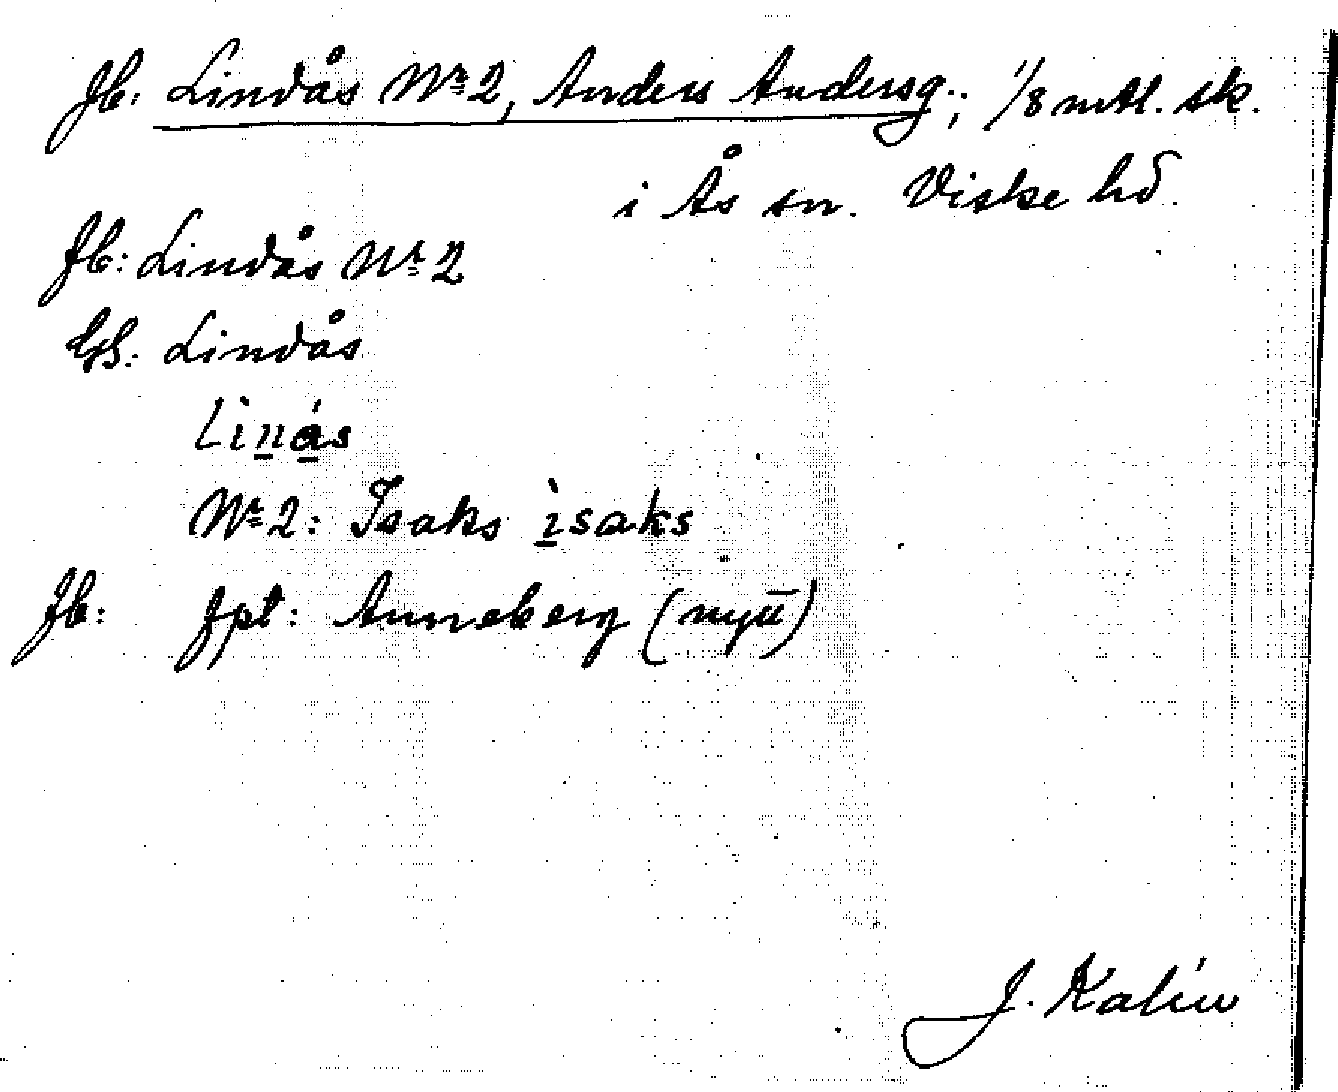 Jb: Lindås Nr 2, Anders Andersg.; 1/8 mtl. sk.
i Ås sn. Viske hd.
Jb: Lindås Nr 2
GS: Lindås
Linás
Nr 2: Isaks ìsaks
Jb: fpt: Anneberg (nytt)
J. Kalén